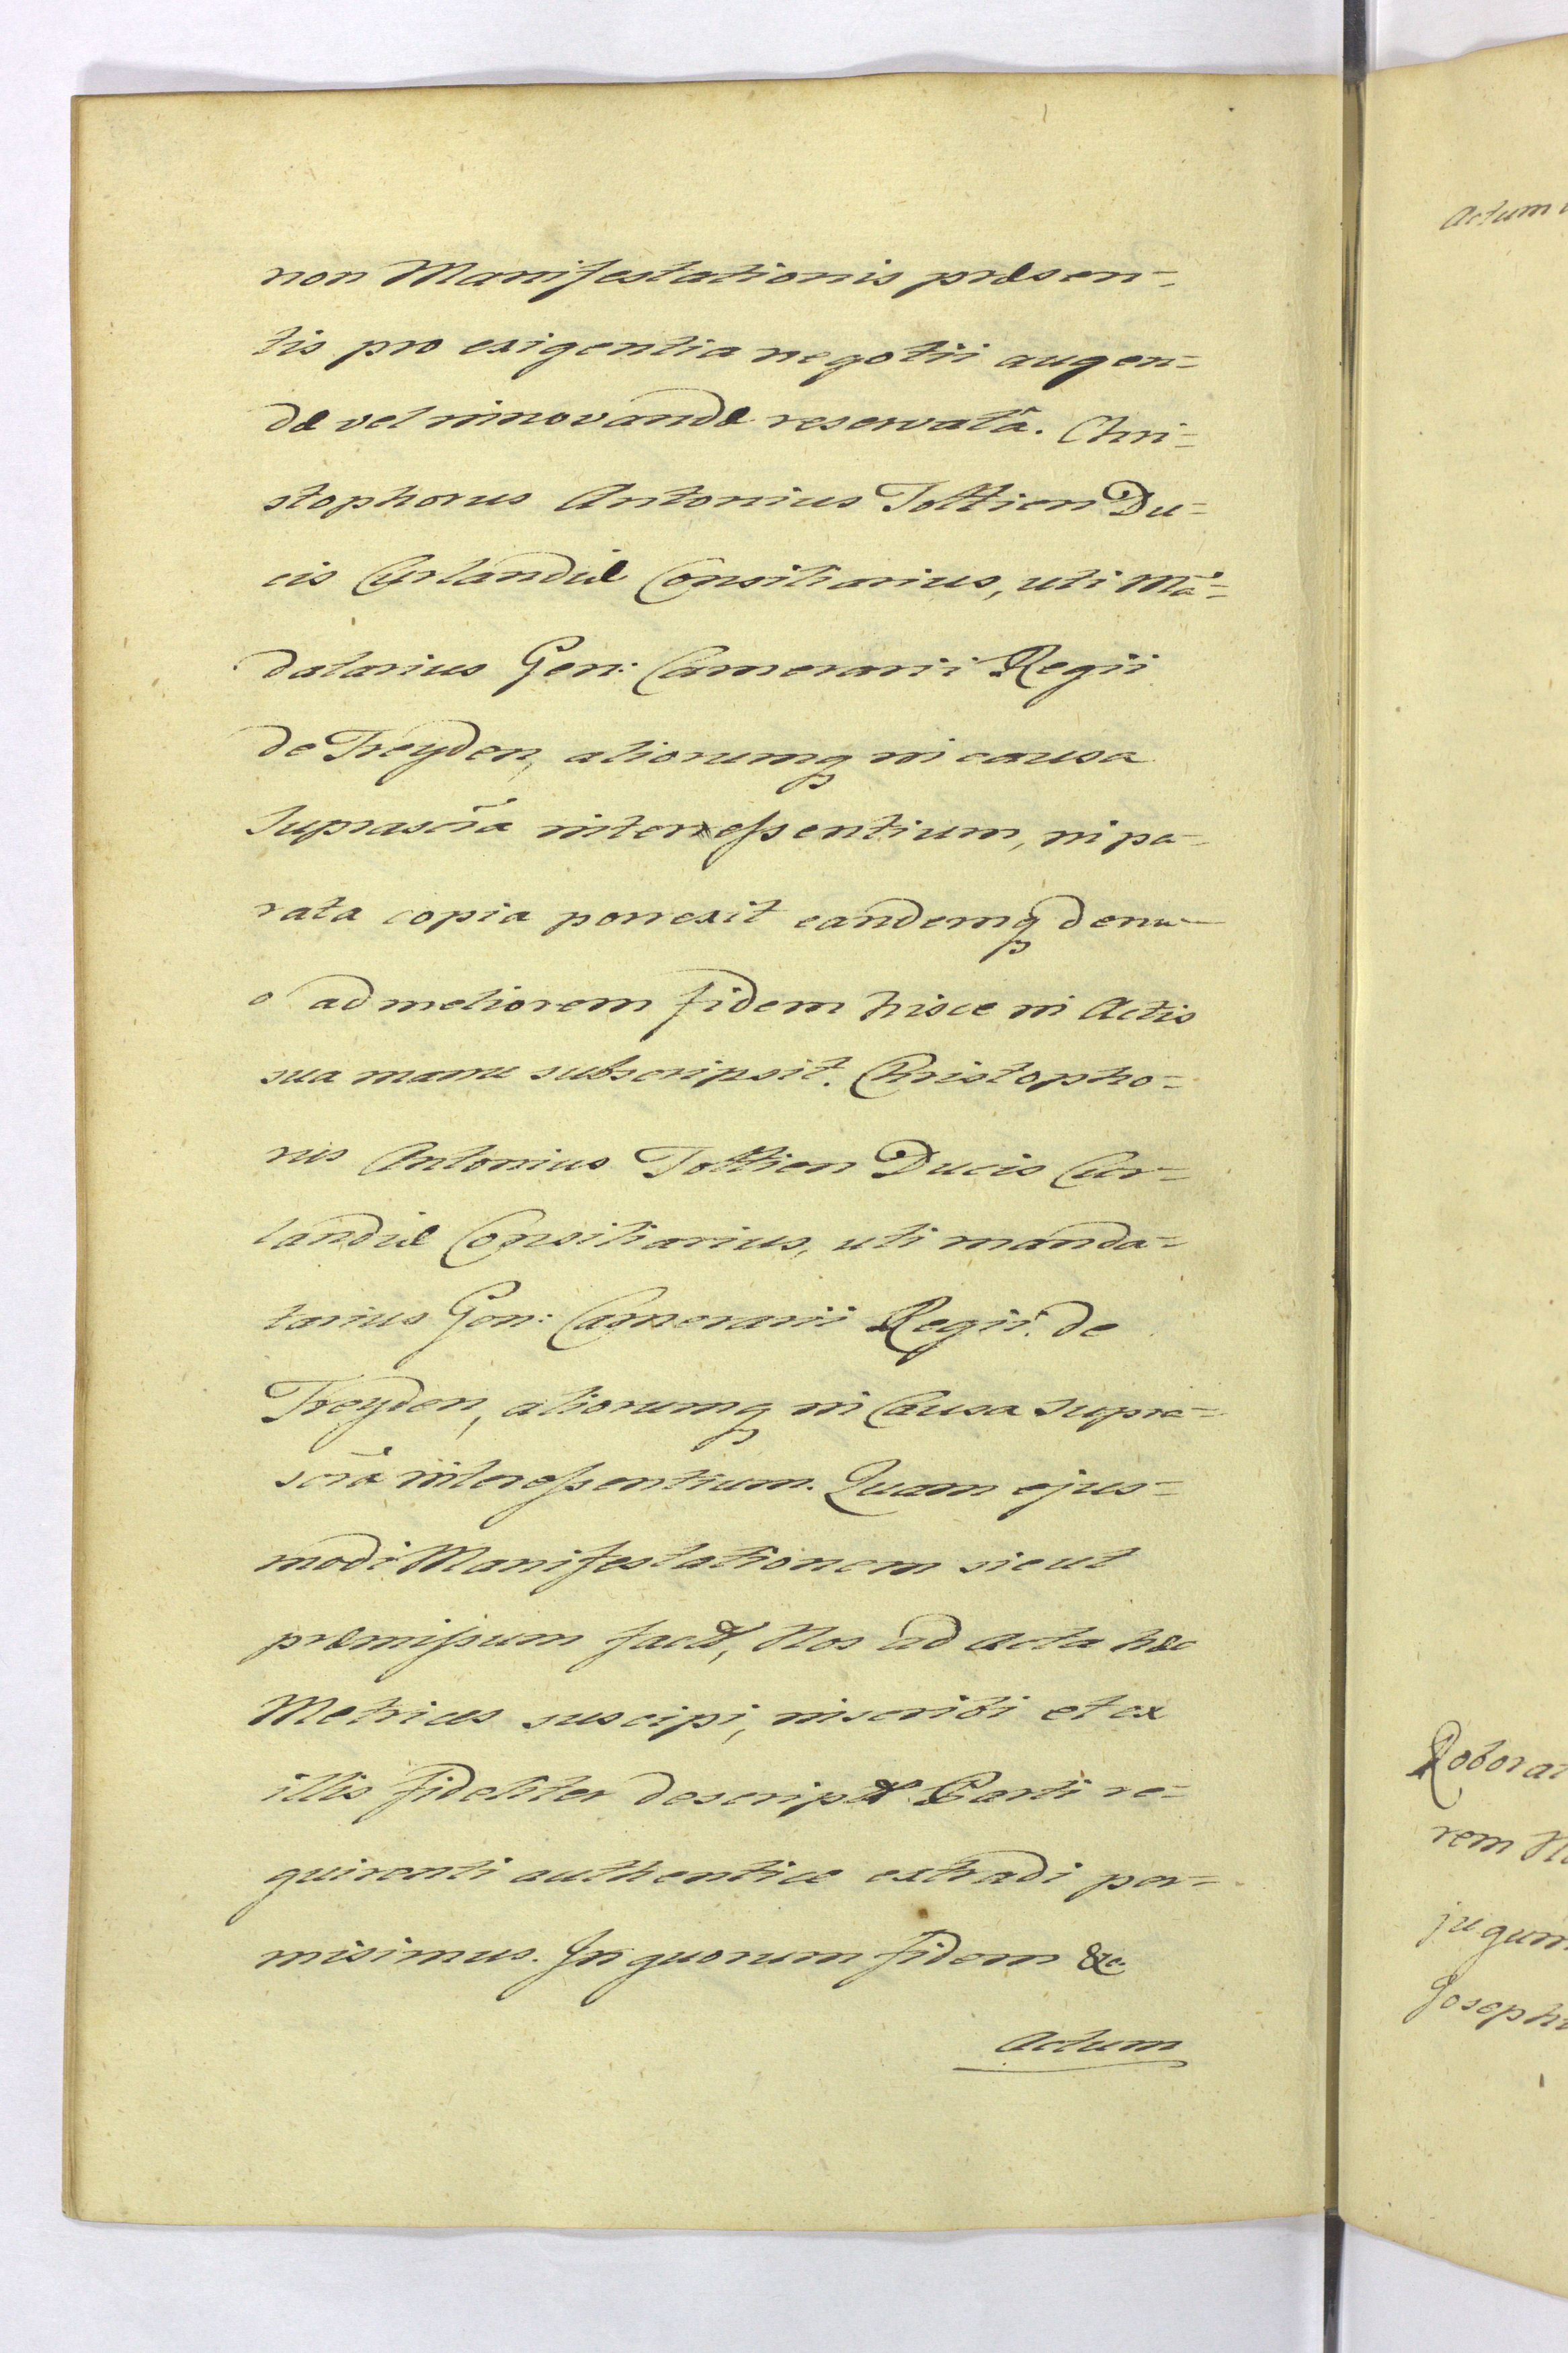 non Manifestationis præsen-
tis pro exigentia negotii augen=
dæ vel innovandæ reservatâ. Chri=
stophorus Antonius Tottien Du=
cis Curlandiæ Consiliarius, uti Mã=
datarius Gen: Camerarii Regii
de Treyden, aliorumq in causa
Suprascrâ interessentium, in pa-
rata copia porrexit eandemq denu-
o ad meliorem fidem hisce in Actis
sua manu subscripsit. Christopho=
rus Antonius Tottien Ducis Cur=
landiæ Consiliarius, uti manda=
tarius Gen: Camerarii Regii de
Treyden, aliorumq in Causa supra=
scrâ interessentium. Quam ejus=
modi Manifestationem sicut
præmissum factam, Nos ad Acta hæc
Metrices suscipi, inscribi et ex
illis fideliter descriptam Parti re=
quirenti authentice extradi per=
misimus. In quorum fidem &c.
Actum
Actum
Roborat
rem
jugum
Joseph